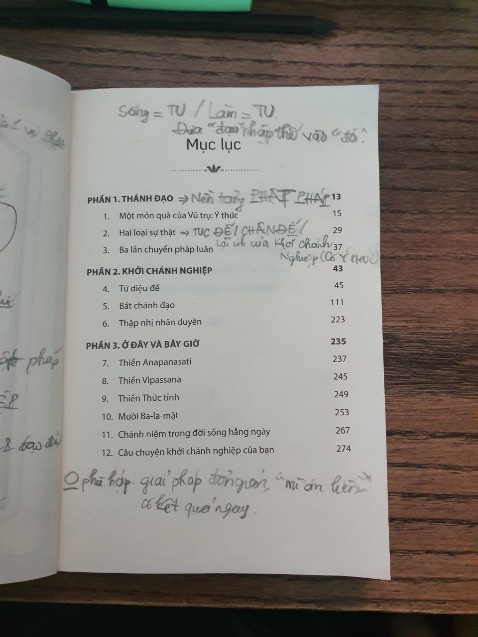 Sống = TU / Làm = TU.
Đưa "đạo" nhập thế vào "đời".
Mục lục
PHẦN 1. THÁNH ĐẠO → Nền tảng PHẬT PHÁP 13
1. Một món quà của Vũ trụ: Ý thức 15
2. Hai loại sự thật → TỤC ĐẾ / CHÂN ĐẾ / 29
3. Ba lần chuyển pháp luân 37
Lợi ích của Khởi chánh
Nghiệp
PHẦN 2. KHỞI CHÁNH NGHIỆP 43
4. Tứ diệu đế 45
5. Bát chánh đạo 111
6. Thập nhị nhân duyên 223
PHẦN 3. Ở ĐÂY VÀ BÂY GIỜ 235
7. Thiền Anapanasati 237
8. Thiền Vipassana 245
9. Thiền Thức tỉnh 249
10. Mười Ba-la-mật 253
11. Chánh niệm trong đời sống hằng ngày 267
12. Câu chuyện khởi chánh nghiệp của bạn 274
phù hợp giải pháp đơn giản, "mì ăn liền"
có kết quả ngay.